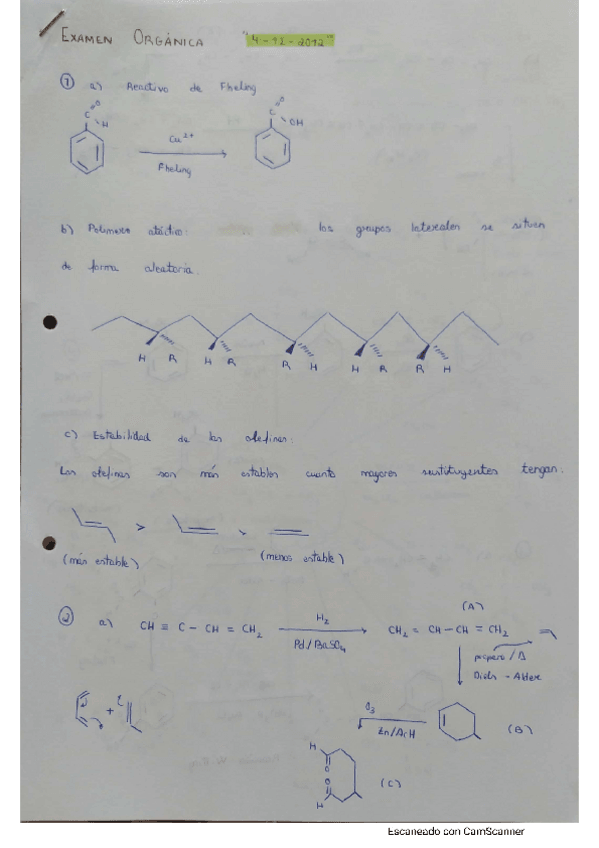 EXAMEN ORGÁNICA "4-12-2012"
① a) Reactivo de Fheling
C O H
C O OH
Cu²⁺
Fheling
b) Polímero atáctico: los grupos laterales se situan
de forma aleatoria.
H R H R R H H R R H
c) Estabilidad de las olefinas:
Las olefinas son más estables cuanto mayores sustituyentes tengan:
> >
(más estable) (menos estable)
② a) CH ≡ C - CH = CH₂ H₂ Pd/BaSO₄ CH₂ = CH - CH = CH₂ (A)
propeno / Δ
Diels - Alder
+
O₃
Zn/AcH
(B)
H O O H
(C)
Escaneado con CamScanner